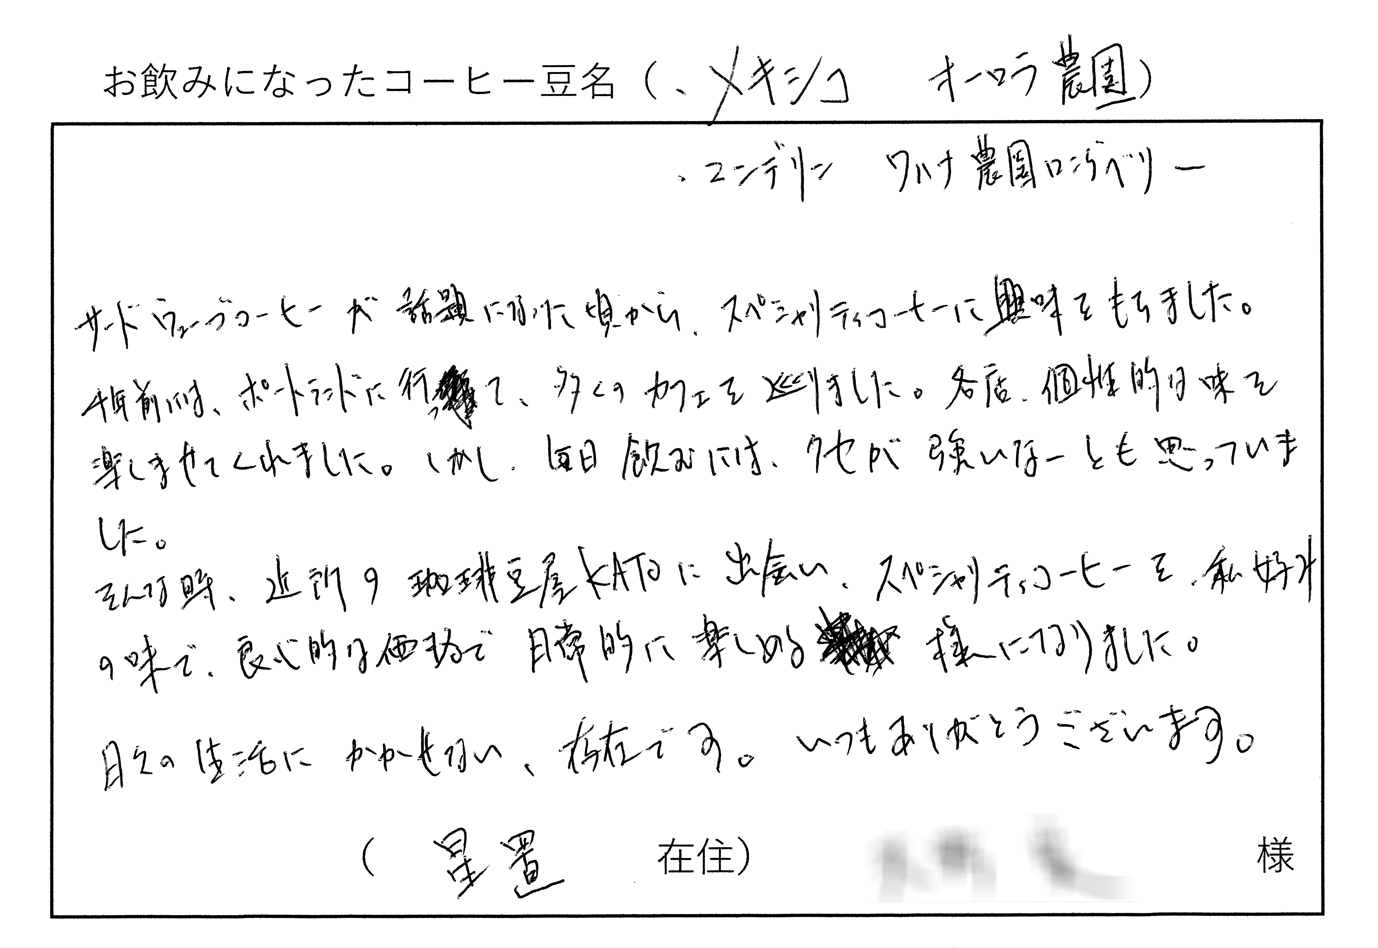 お飲みになったコーヒー豆名（、メキシコ　オーロラ農園）
・マンデリン　ワハナ農園ロングベリー
サードウェーブコーヒーが話題になった頃から、スペシャリティコーヒーに興味をもちました。
数年前には、ポートランドに行って、多くのカフェをめぐりました。各店、個性的な味を
楽しませてくれました。しかし、毎日飲むには、クセが強いなーとも思っていま
した。
そんな時、近所の珈琲豆屋KATOに出会い、スペシャリティコーヒーを、私好み
の味で、良心的な価格で日常的に楽しめる様になりました。
日々の生活にかかせない、存在です。いつもありがとうございます。
（　星置　在住）　様